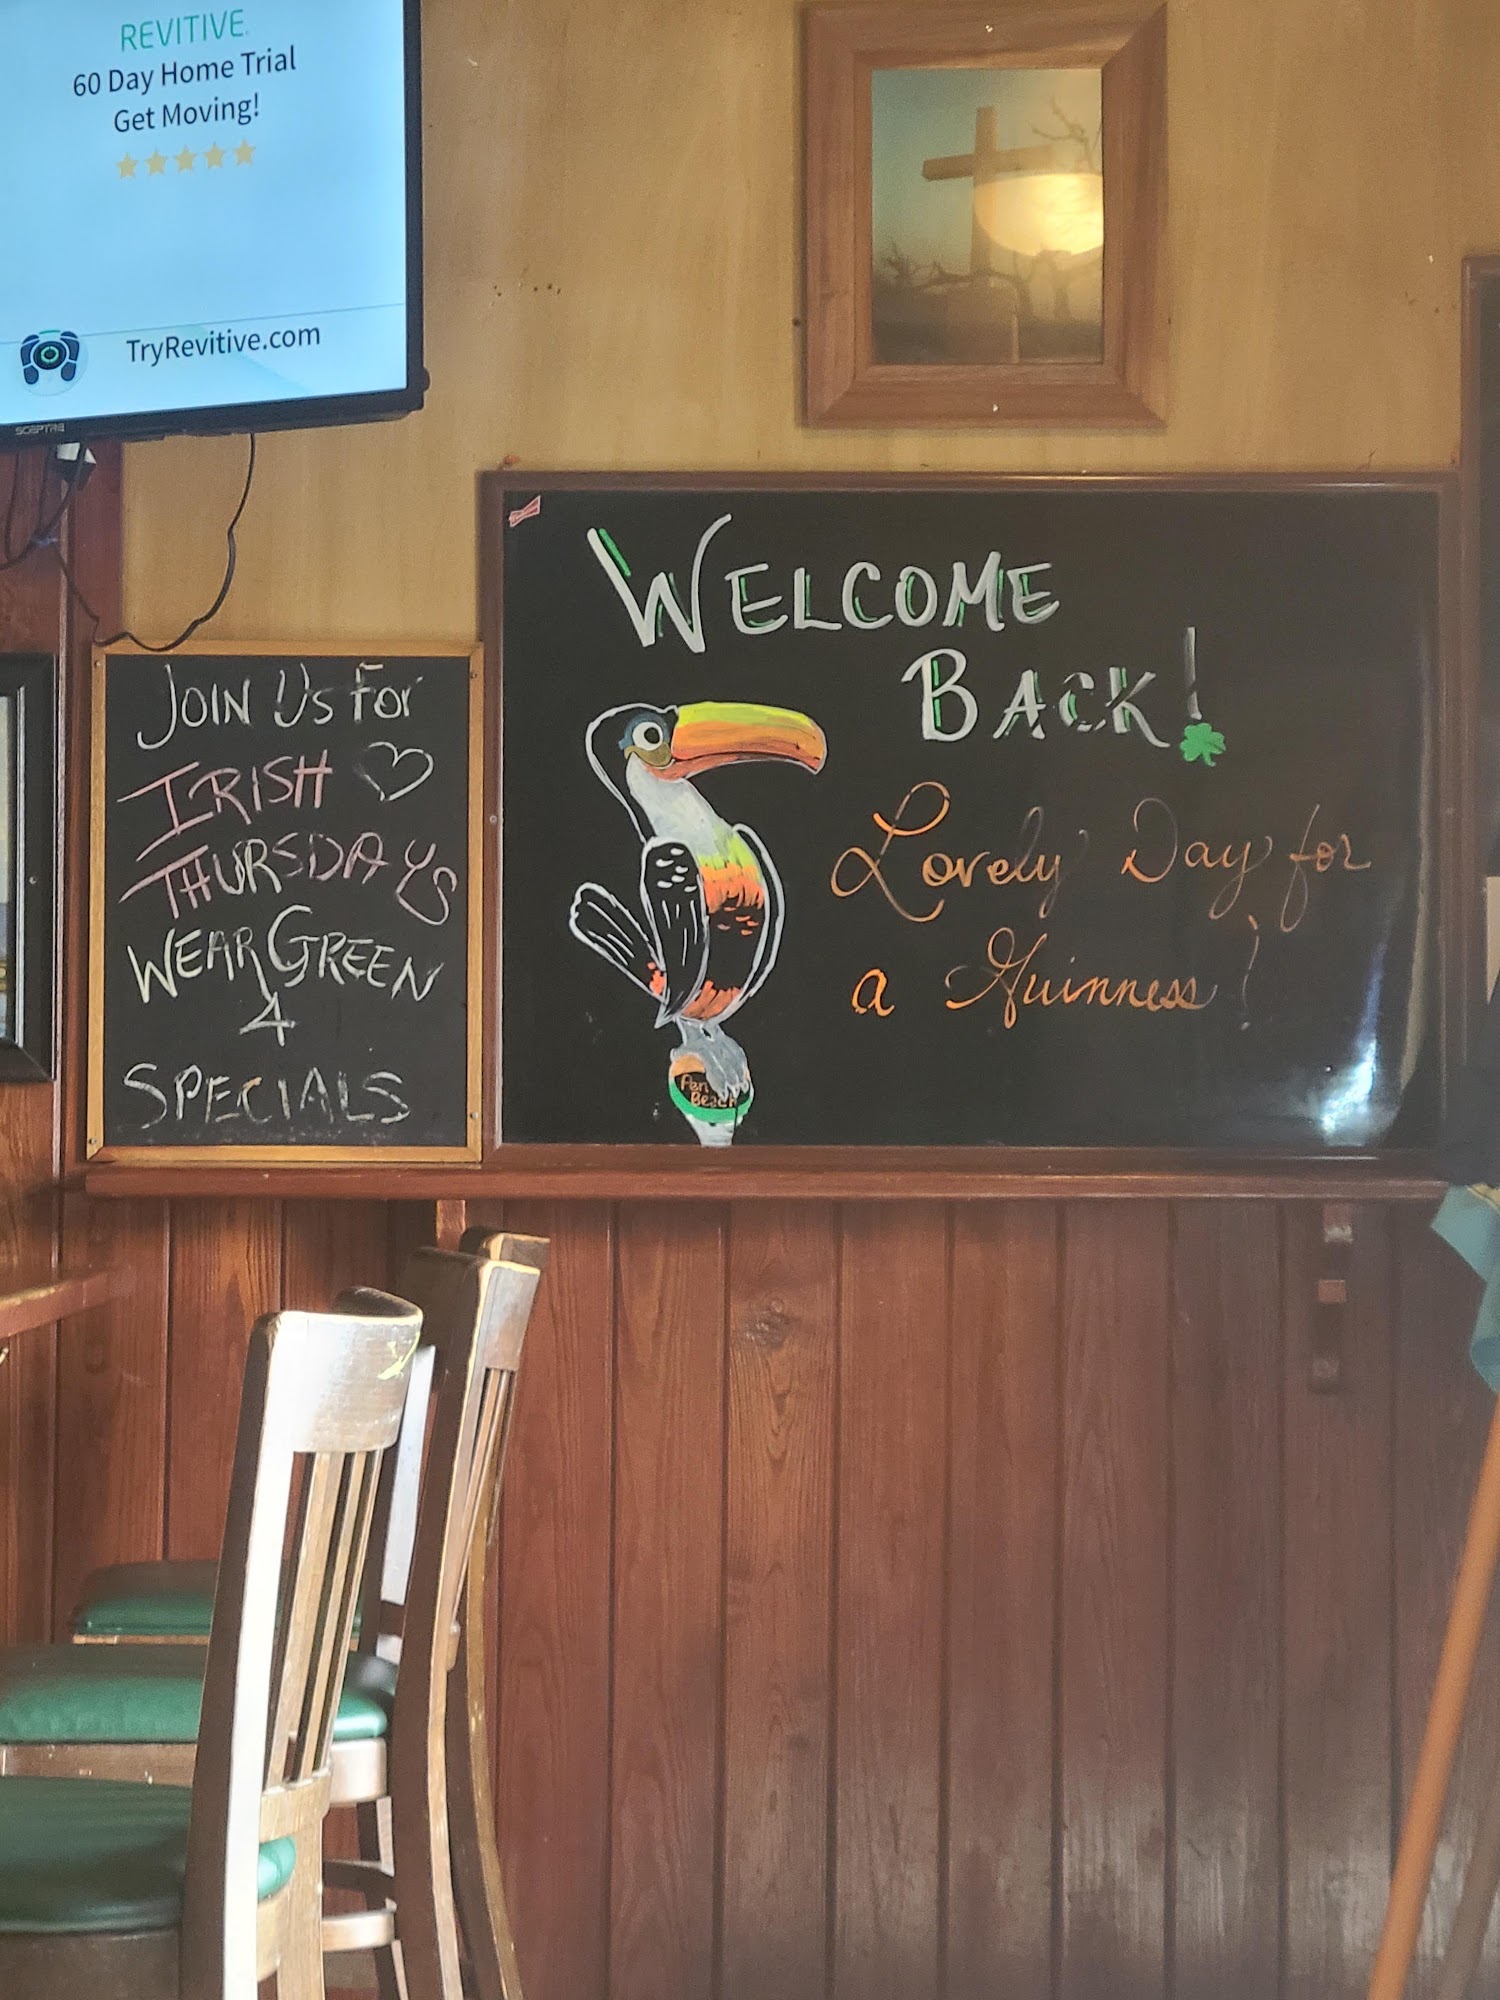 REVITIVE.
60 Day Home Trial
Get Moving!
TryRevitive.com
SCEPTRE
JOIN US FOR
IRISH
THURSDAYS
WEAR GREEN
4
SPECIALS
WELCOME
BACK!
Lovely Day for
a Guinness!
Pen
Beach